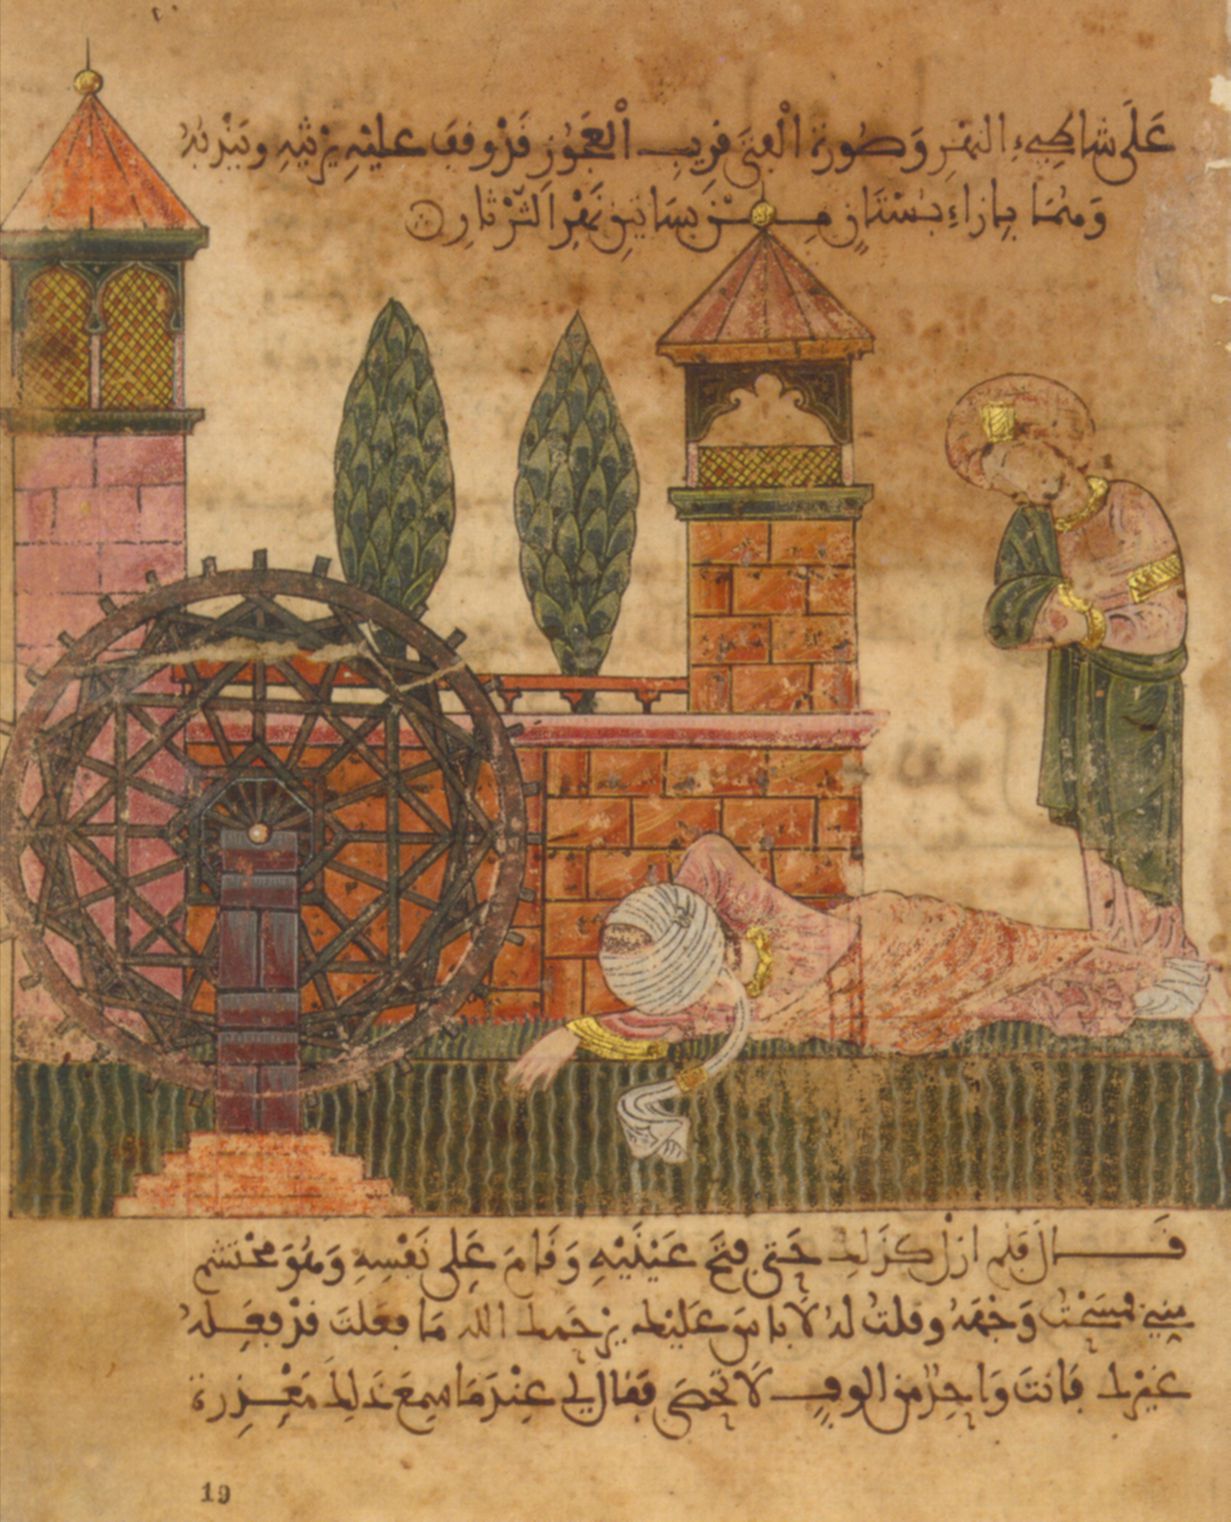 عَلَى شاطِىءِ النهْرِ وَصُورةُ الْفتَى قَرِيب الْعَجُوز قَدْ وقفَ عليْهِ يَرْثِيهِ ويَنْدبُهُ
وَهمَا بإزاءِ بُسْتَانٍ مِـنْ بسَاتِينِ نَهْرِ الثَرْثارِ
قَـالَ فلم ازَلْ كذَلِك حَتى فتَحَ عَيْنَيْهِ وَقَامَ عَلى نَفْسِهِ وَهُوَ مُحْتشم
مِنِي فمسَحْتُ وَجْهَهُ وقلتُ لهُ لَا باسَ عَليْك يرْحَمك الله مَا فعَلتَ قدْ فعَـلهُ
غيْرك فَانتَ وَاحِدٌ من الوفٍ لَا تُحْصَى فقال لِي عِنْدَمَا سمِعَ ذَلِكَ مَعْـذِرة
19